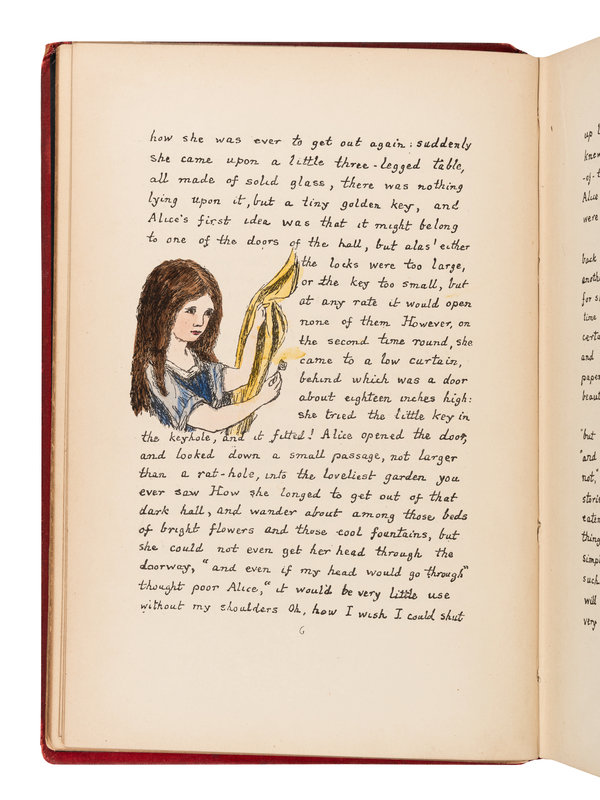 how she was ever to get out again: suddenly
she came upon a little three-legged table,
all made of solid glass, there was nothing
lying upon it, but a tiny golden key, and
Alice's first idea was that it might belong
to one of the doors of the hall, but alas! either
the locks were too large,
or the key too small, but
at any rate it would open
none of them However, on
the second time round, she
came to a low curtain,
behind which was a door
about eighteen inches high:
she tried the little key in
the keyhole, and it fitted! Alice opened the door,
and looked down a small passage, not larger
than a rat-hole, into the loveliest garden you
ever saw How she longed to get out of that
dark hall, and wander about among those beds
of bright flowers and those cool fountains, but
she could not even get her head through the
doorway, "and even if my head would go through"
thought poor Alice, "it would be very little use
without my shoulders Oh, how I wish I could shut
6
up
knew
-of-t
Alice
were
back
anoth
for s
time
certa
and
paper
beaut
"but
"and
not,"
storie
eaten
thing
simpl
such
will
very